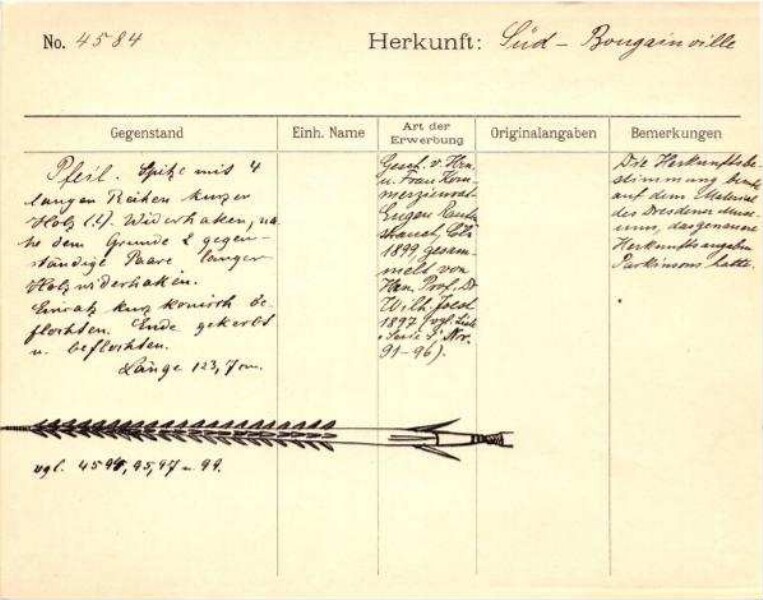 No. 4584
Herkunft: Süd - Bougainville
Gegenstand
Einh. Name
Art der
Erwerbung
Originalangaben
Bemerkungen
Pfeil. Spitze mit 4
langen Reihen kurzer
Holz (?) Widerhaken, na-
he dem Grunde 2 gegen-
ständige Paare langer
Holzwiderhaken.
Einsatz kurz konisch be-
flochten. Ende gekerbt
u. beflochten.
Länge 123,7 cm.
Gesch. v. Hrn.
u. Frau Kom-
merzienrat
Eugen Rauten-
strauch, Cöln
1899, gesam-
melt von
Hrn. Prof. Dr.
Wilh. Joest
1897 (vgl. Liste
Serie Nor.
91-96).
Die Herkunftsbe-
stimmung beruht
auf dem Material
des Dresdener Muse-
ums, das genauere
Herkunftsangaben
Parkinsons hatte.
vgl. 4594, 95, 97 u. 99.